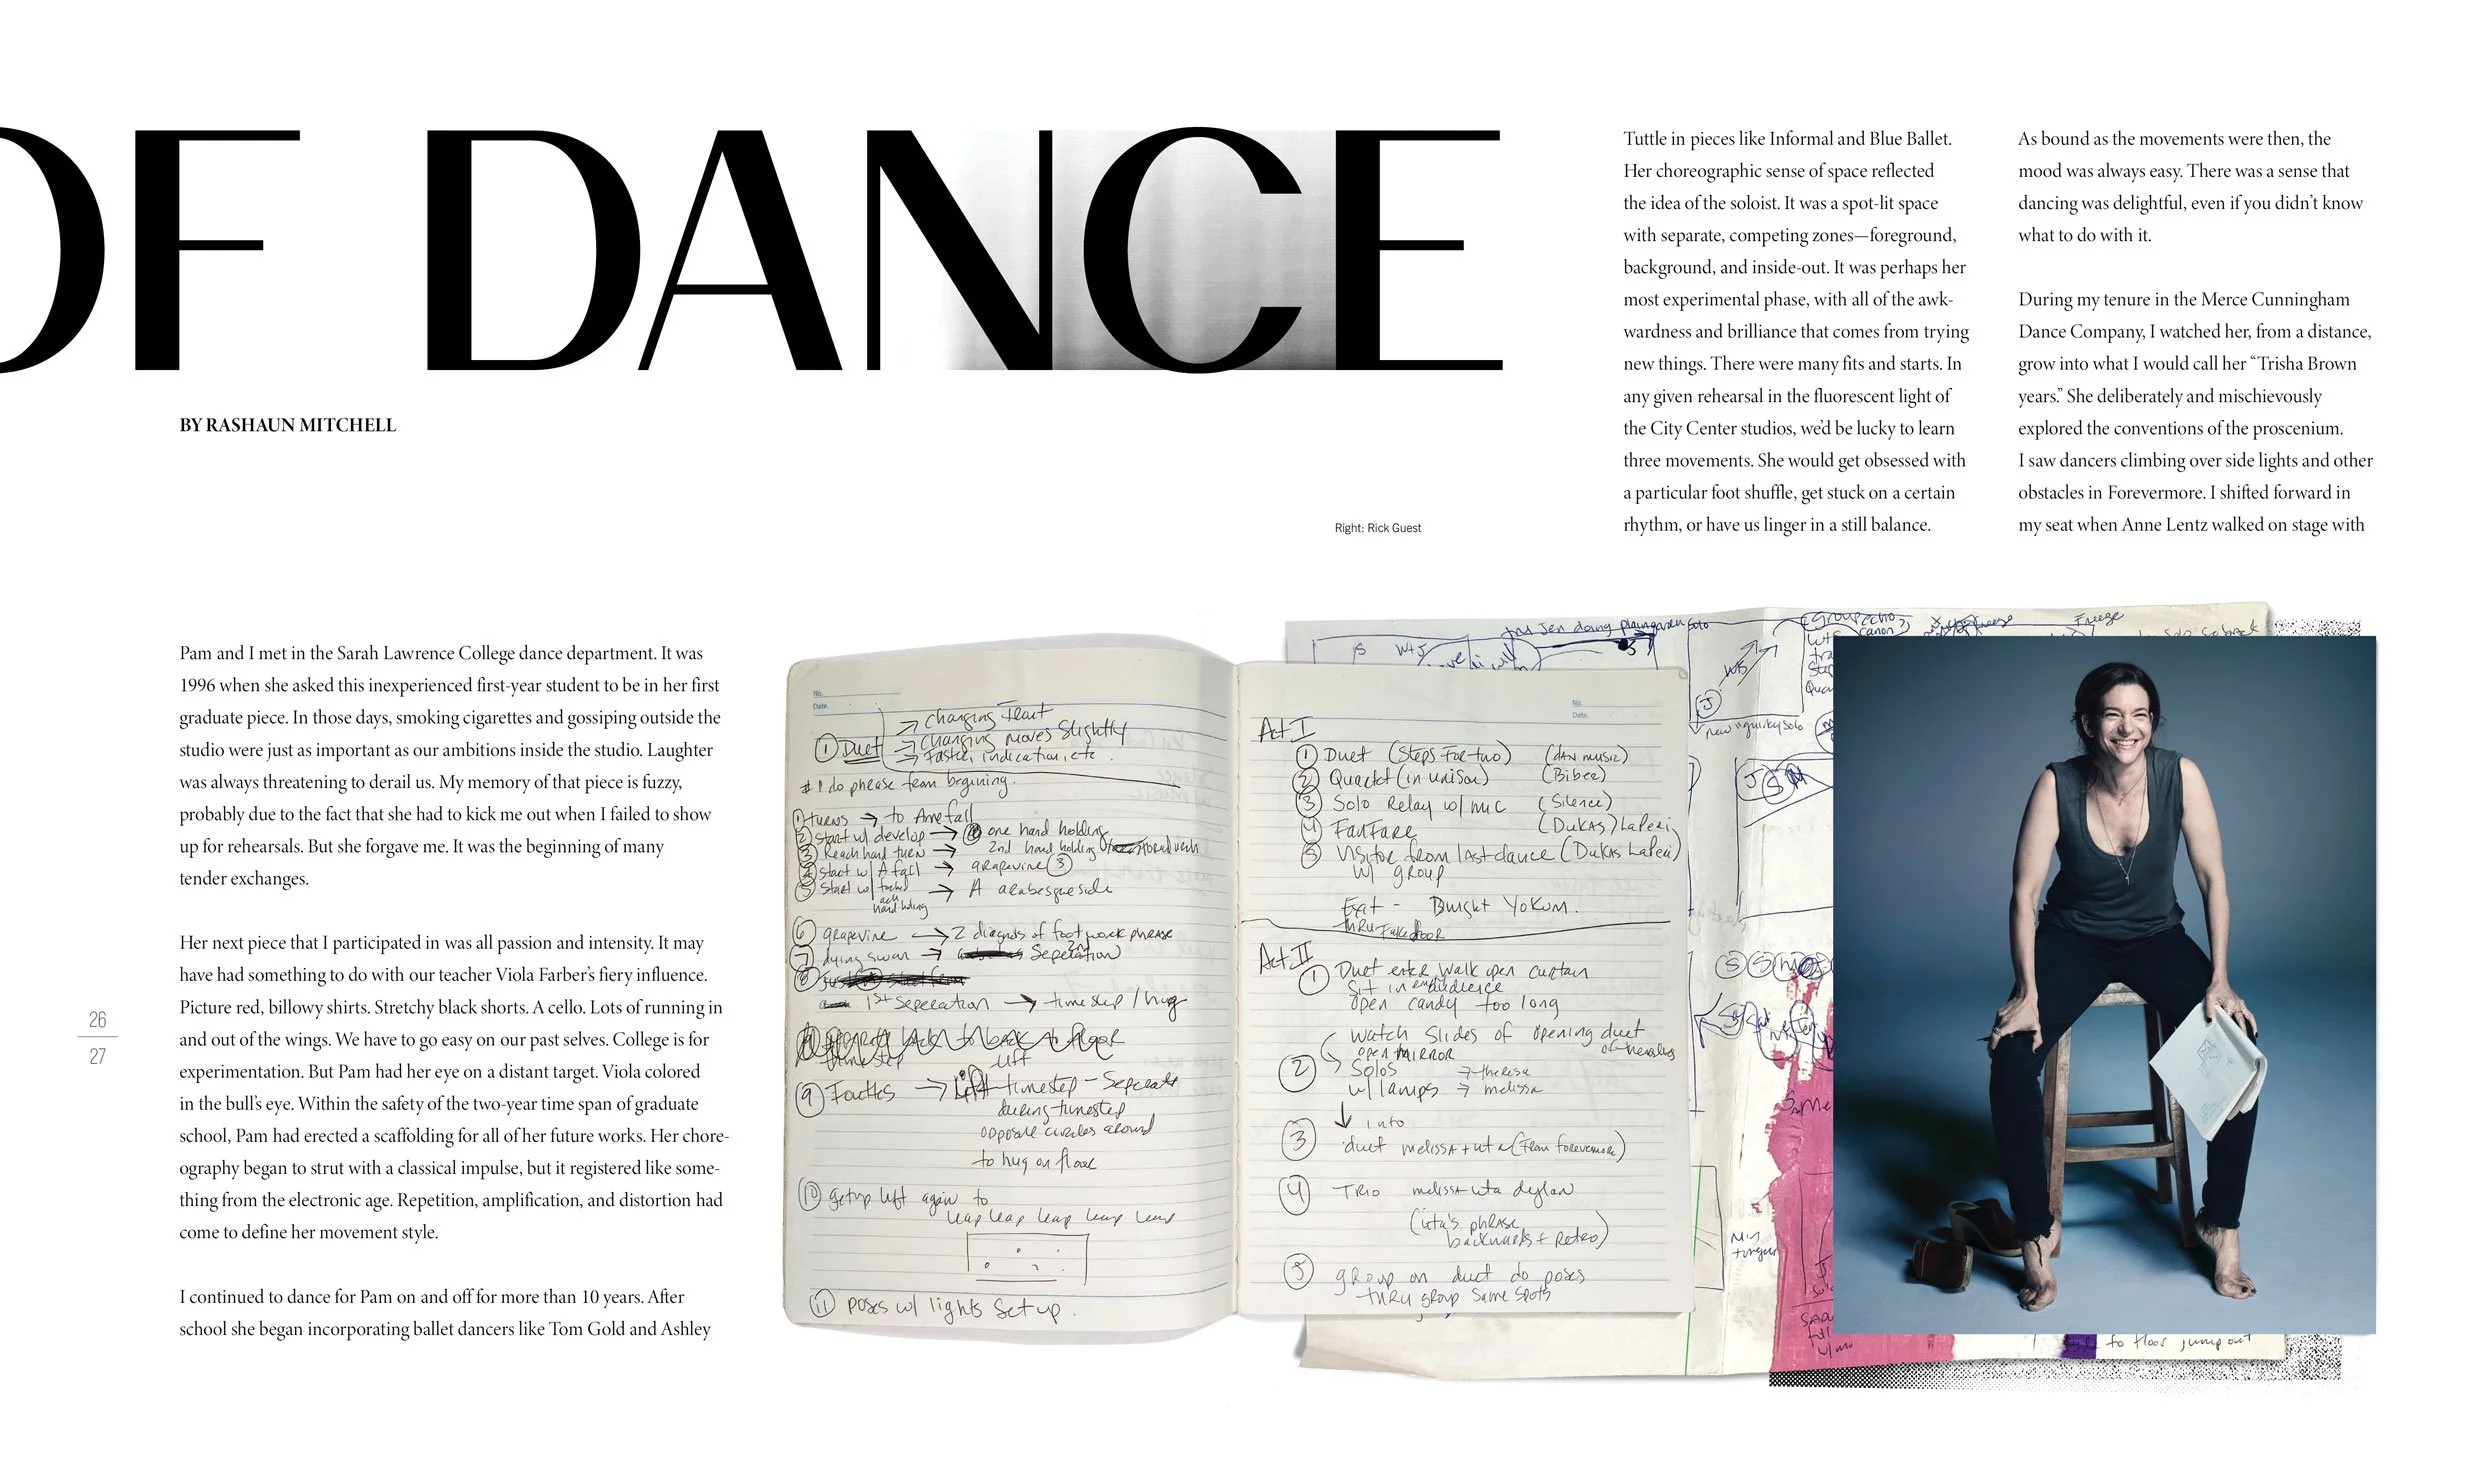 OF DANCE
BY RASHAUN MITCHELL
Pam and I met in the Sarah Lawrence College dance department. It was
1996 when she asked this inexperienced first-year student to be in her first
graduate piece. In those days, smoking cigarettes and gossiping outside the
studio were just as important as our ambitions inside the studio. Laughter
was always threatening to derail us. My memory of that piece is fuzzy,
probably due to the fact that she had to kick me out when I failed to show
up for rehearsals. But she forgave me. It was the beginning of many
tender exchanges.
Her next piece that I participated in was all passion and intensity. It may
have had something to do with our teacher Viola Farber's fiery influence.
Picture red, billowy shirts. Stretchy black shorts. A cello. Lots of running in
and out of the wings. We have to go easy on our past selves. College is for
experimentation. But Pam had her eye on a distant target. Viola colored
in the bull's eye. Within the safety of the two-year time span of graduate
school, Pam had erected a scaffolding for all of her future works. Her chore-
ography began to strut with a classical impulse, but it registered like some-
thing from the electronic age. Repetition, amplification, and distortion had
come to define her movement style.
I continued to dance for Pam on and off for more than 10 years. After
school she began incorporating ballet dancers like Tom Gold and Ashley
Tuttle in pieces like Informal and Blue Ballet.
Her choreographic sense of space reflected
the idea of the soloist. It was a spot-lit space
with separate, competing zones—foreground,
background, and inside-out. It was perhaps her
most experimental phase, with all of the awk-
wardness and brilliance that comes from trying
new things. There were many fits and starts. In
any given rehearsal in the fluorescent light of
the City Center studios, we'd be lucky to learn
three movements. She would get obsessed with
a particular foot shuffle, get stuck on a certain
rhythm, or have us linger in a still balance.
As bound as the movements were then, the
mood was always easy. There was a sense that
dancing was delightful, even if you didn't know
what to do with it.
During my tenure in the Merce Cunningham
Dance Company, I watched her, from a distance,
grow into what I would call her “Trisha Brown
years.” She deliberately and mischievously
explored the conventions of the proscenium.
I saw dancers climbing over side lights and other
obstacles in Forevermore. I shifted forward in
my seat when Anne Lentz walked on stage with
Right: Rick Guest
26
27
No.
Date
① Duet → changing front
→ changing moves slightly
→ faster, indication, etc.
# 1 do phrase from beginning.
① turns →
② start w/ develop → one hand holding
③ Reach hand turn → 2nd hand holding
④ start w/ A fall → grapevine ③
⑤ start w/ → A arabesque side
⑥ grapevine → 2 diagnols of foot work phrase
⑦ dying swan → 2nd Seperation
⑧
1st Seperation → time step / hug
timestep
⑨ → Lift timestep - Seperate
during timestep
opposite circles around
to hug on floor
⑩ getup left again to
leap leap leap leap leap
⑪ poses w/ lights set up.
No.
Date
Act I
① Duet (Steps for two) (DAN music)
② Quartet (in unison) (Biber)
③ Solo Relay w/ mic (Silence)
④ FanFare (Dukas) LaPeri
⑤ Visitor from last dance (Dukas LaPeri)
w/ group
Exit - Dwight Yokum.
thru fake door
Act II
① Duet enter walk open curtain
Sit in audience
open candy too long
watch slides of opening duet
of themselves
open MIRROR
② Solos → theresa
w/ lamps → melissa
↓ into
③ duet melissa + uta (from forevermore)
④ TRIO melissa uta dylan
(uta's phrase
backwards + Retro)
⑤ group on duct do poses
thru group same spots
Freeze
new "quirky solo"
to floor jump out